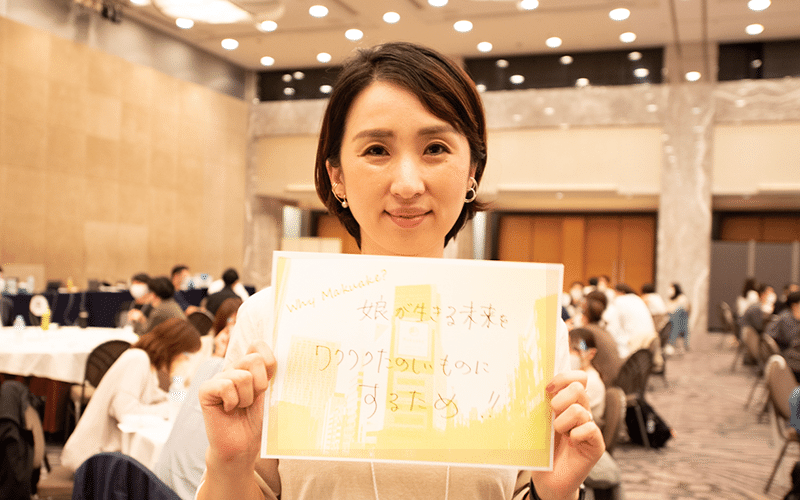 Why Makuake?
娘が生きる未来を
ワクワクたのしいものに
するため!!